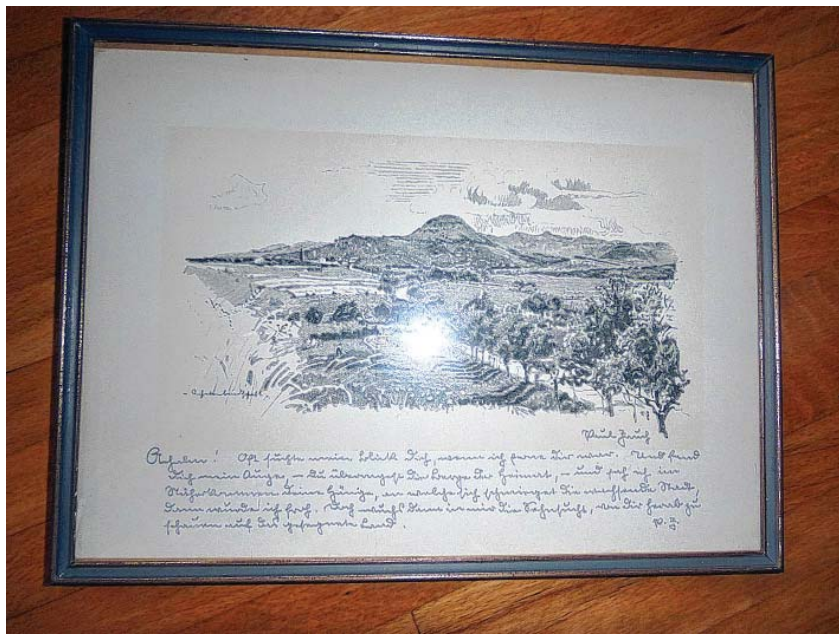 Paul Jauch
Achalm! Oft suchte mein Blick Dich, wenn ich ferne Dir war. Und fand
Dich mein Auge, – Du überragst die Berge der Heimat, – und sah ich im
Näherkommen Deine Hänge, an welche sich schmieget die wachsende Stadt,
dann wurde ich froh. Doch wuchs dann in mir die Sehnsucht, von Dir herab zu
schauen auf das gesegnete Land.